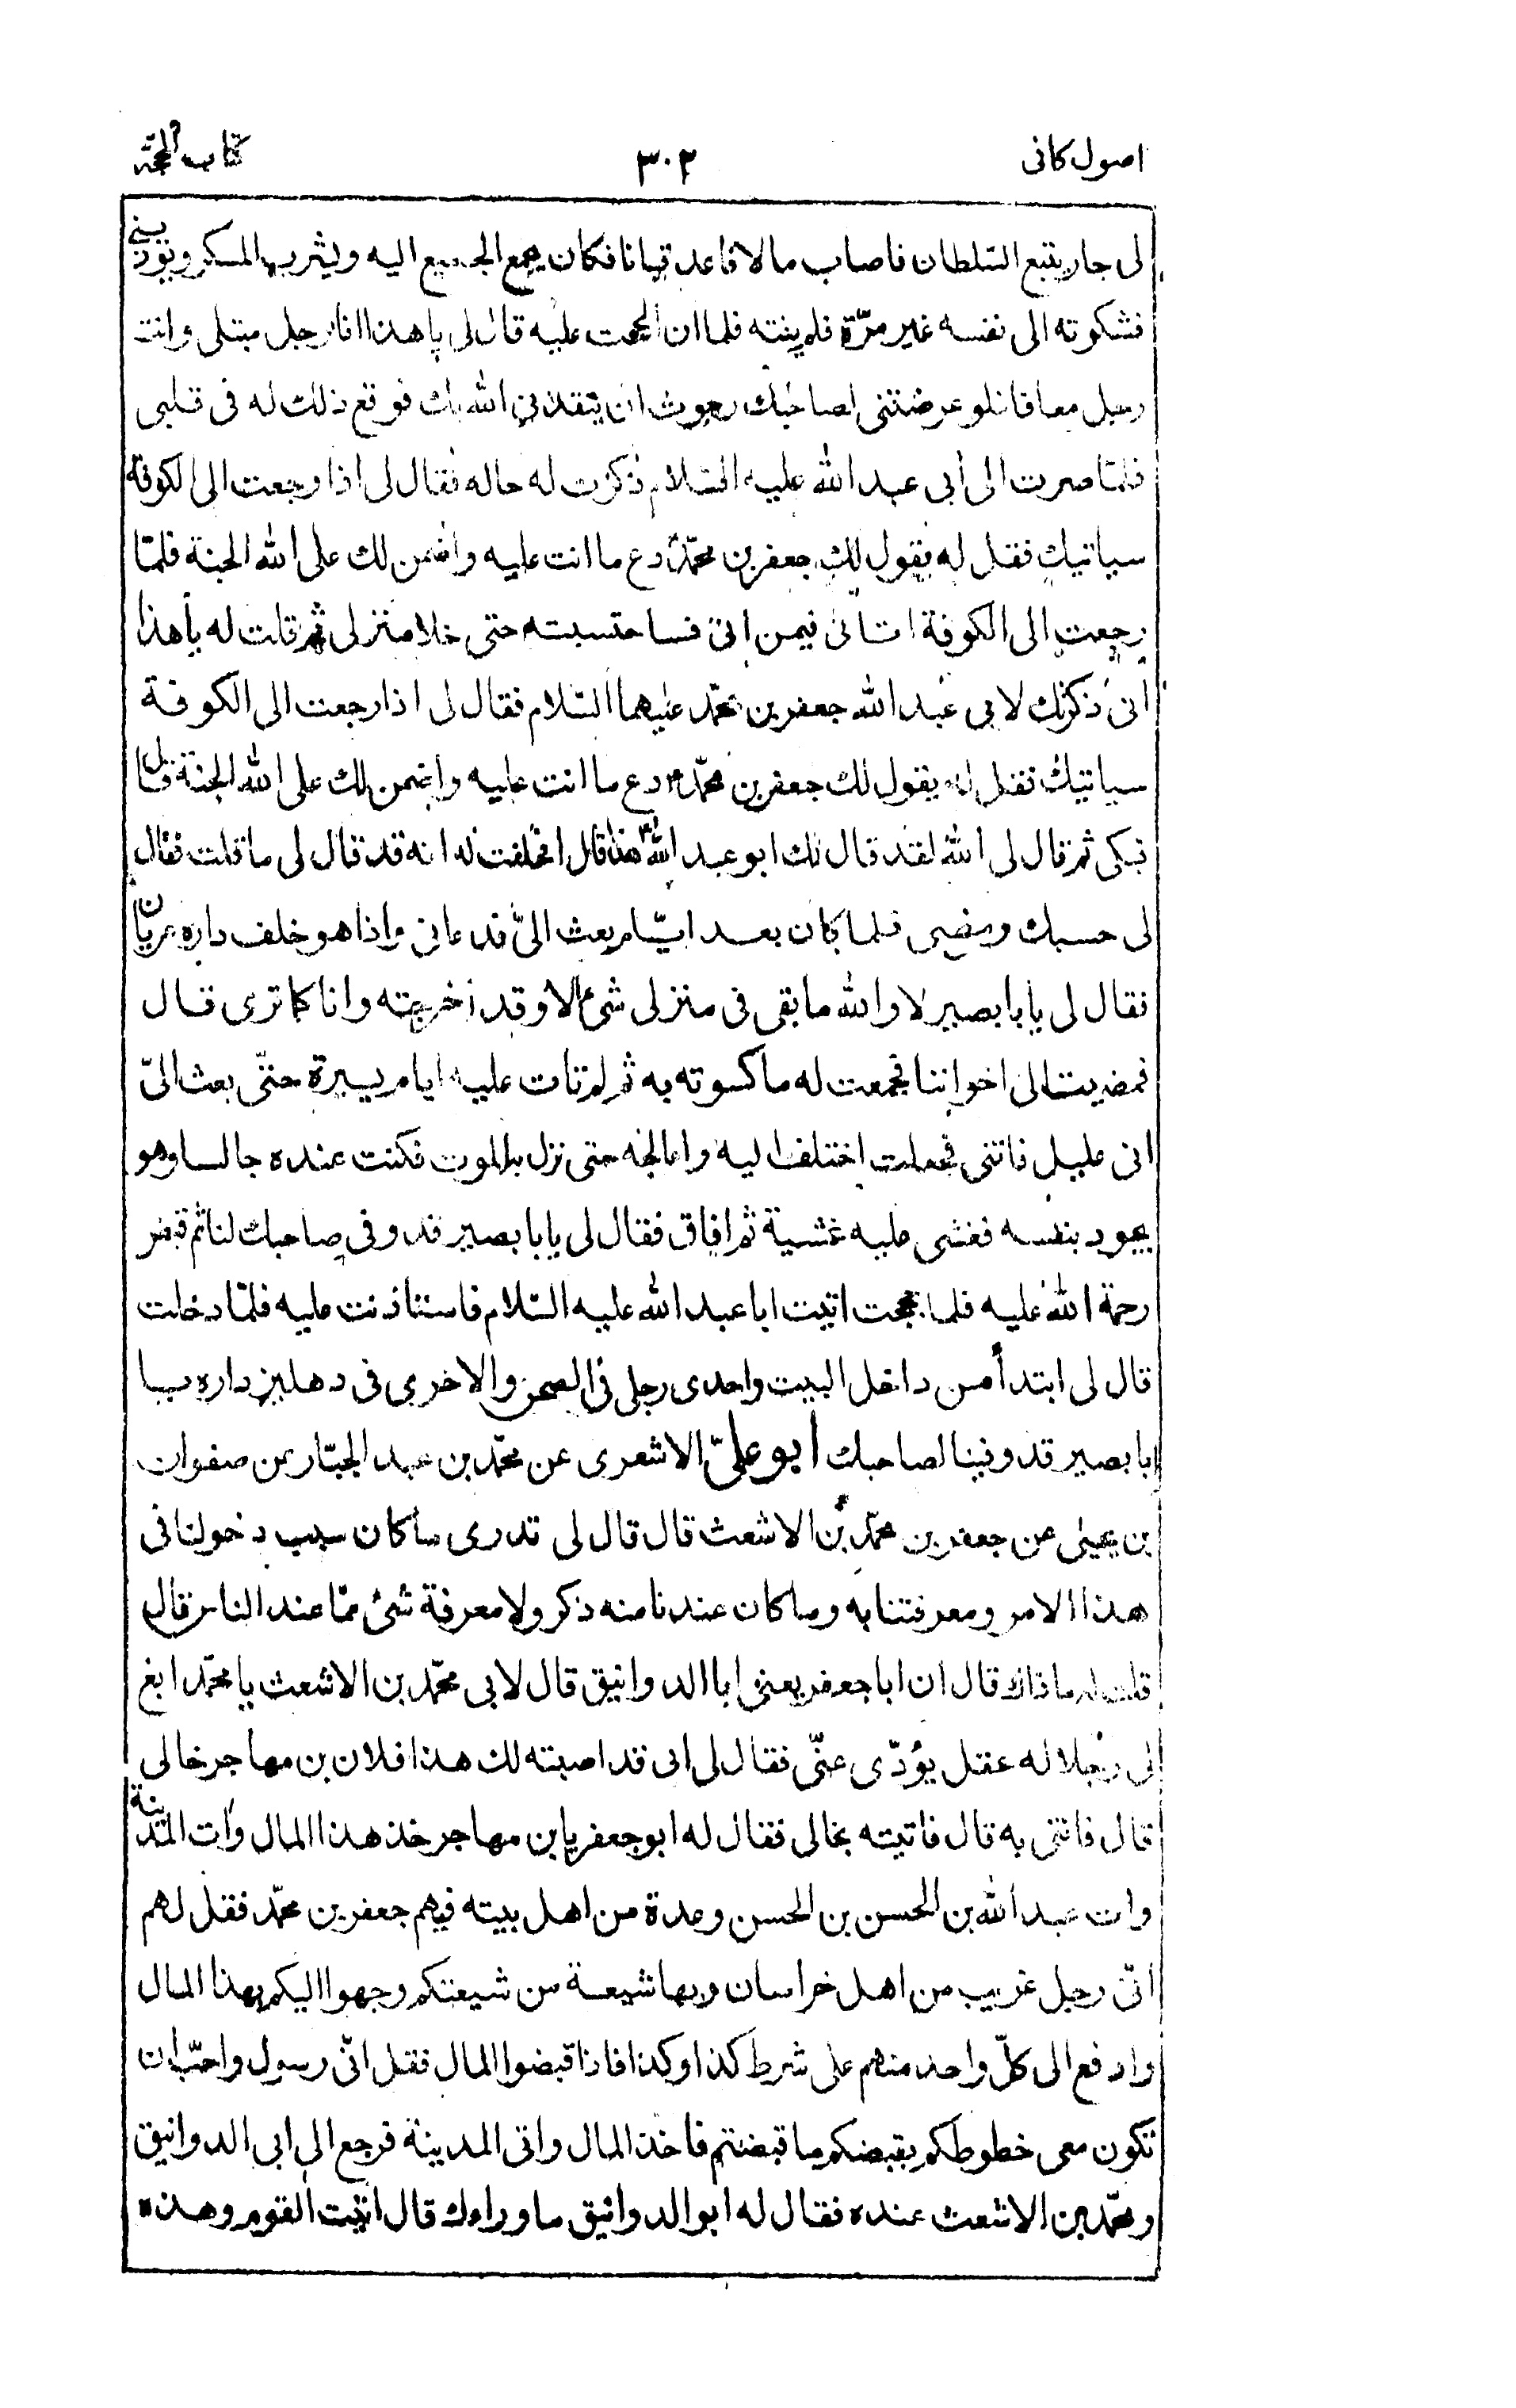 اصول كافى
٣٠٢
كتاب الحجّة
لى جار يتبع السّلطان فاصاب مالا فاعد قيانا فكان يجمع الجميع اليه ويشرب المسكر ويؤذينى
فشكوته الى نفسه غير مرّة فلم ينته فلما ان الححت عليه قال لى يا هذا انا رجل مبتلى وانت
رجل معافا فلو عرضتنى لصاحبك رجوت ان ينقذنى الله بك فوقع ذلك له فى قلبى
فلمّا صرت الى أبى عبد الله عليه السّلام ذكرت له حاله فقال لى اذا رجعت الى الكوفة
سياتيك فقل له يقول لك جعفر بن محمّد دع ما انت عليه واضمن لك على الله الجنة فلمّا
رجعت الى الكوفة اتانى فيمن اتى فاحتسبته حتى خلا منزلى ثم قلت له يا هذا
انى ذكرتك لابى عبد الله جعفر بن محمّد عليهما السّلام فقال لى اذا رجعت الى الكوفة
سياتيك فقل له يقول لك جعفر بن محمّد دع ما انت عليه واضمن لك على الله الجنة قال
فبكى ثم قال لى الله لقد قال لك ابو عبد الله هذا قال فحلفت له انه قد قال لى ما قلت فقال
لى حسبك ومضى فلما كان بعد ايّام بعث الىّ فدعانى واذا هو خلف داره عريان
فقال لى يا بابصير لا والله ما بقى فى منزلى شئ الا وقد اخرجته وانا كما ترى قال
فمضيت الى اخواننا فجمعت له ما كسوته به ثم لم تات عليه ايام يسيرة حتّى بعث الىّ
انى عليل فاتنى فجعلت اختلف اليه واعالجه حتى نزل به الموت فكنت عنده جالسا وهو
يجود بنفسه فغشى عليه غشية ثم افاق فقال لى يا بابصير قد وفى صاحبك لنا ثم قبض
رحمة الله عليه فلما حججت اتيت ابا عبد الله عليه السّلام فاستاذنت عليه فلمّا دخلت
قال لى ابتدأ من داخل البيت واحدى رجلى فى الصحن والاخرى فى دهليز داره يا
ابا بصير قد وفينا لصاحبك أبو علىّ الاشعرى عن محمّد بن عبد الجبّار عن صفوان
بن يحيى عن جعفر بن محمّد بن الاشعث قال قال لى تدرى ما كان سبب دخولنا فى
هذا الامر ومعرفتنا به وما كان عندنا منه ذكر ولا معرفة شئ ممّا عند الناس قال
قلت له ما ذاك قال ان ابا جعفر يعنى ابا الدوانيق قال لابى محمّد بن الاشعث يا محمّد ابغ
لى رجلا له عقل يؤدّى عنّى فقال لى انى قد اصبته لك هذا فلان بن مهاجر خالى
قال فاتنى به قال فاتيته بخالى فقال له ابو جعفر يا بن مهاجر خذ هذا المال وأت المدينة
وات عبد الله بن الحسن بن الحسن وعدة من اهل بيته فيهم جعفر بن محمّد فقل لهم
انّى رجل غريب من اهل خراسان وبها شيعة من شيعتكم وجهوا اليكم بهذا المال
وادفع الى كلّ واحد منهم على شرط كذا وكذا فاذا قبضوا المال فقل انّى رسول واحبّ ان
تكون معى خطوطكم بقبضكم ما قبضتم فاخذ المال واتى المدينة فرجع الى ابى الدوانيق
ومحمّد بن الاشعث عنده فقال له ابو الدوانيق ما وراءك قال اتيت القوم وهذه